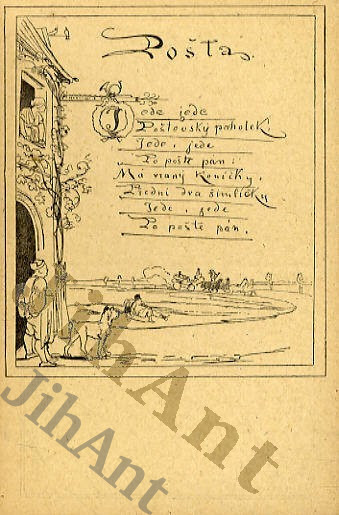 Pošta.
Jede jede
Poštovský paholek
Jede, jede
Po poště pan:
Má vraný koníčky,
Přední dva šimlíčky
Jede, jede
Po poště pan.
JihAnt
JihAnt